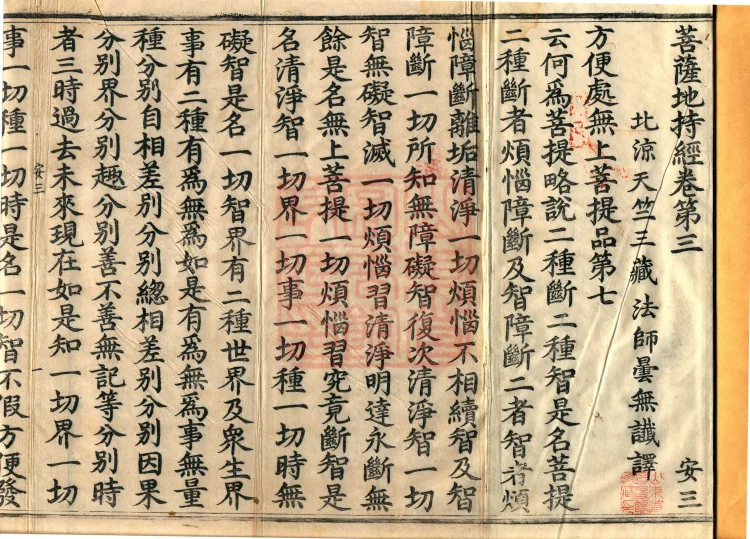 菩薩地持經卷第三 安三
北涼天竺三藏法師曇無讖譯
方便處無上菩提品第七
云何為菩提略說二種斷二種智是名菩提
二種斷者煩惱障斷及智障斷二者智者煩
惱障斷離垢清淨一切煩惱不相續智及智
障斷一切所知無障礙智復次清淨智一切
智無礙智滅一切煩惱習清淨明達永斷無
餘是名無上菩提一切煩惱習究竟斷智是
名清淨智一切界一切事一切種一切時無
礙智是名一切智界有二種世界及眾生界
事有二種有為無為如是有為無為事無量
種分別自相差別分別總相差別分別因果
分別界分別趣分別善不善無記等分別時
者三時過去未來現在如是知一切界一切
安三
事一切種一切時是名一切智不假方便發